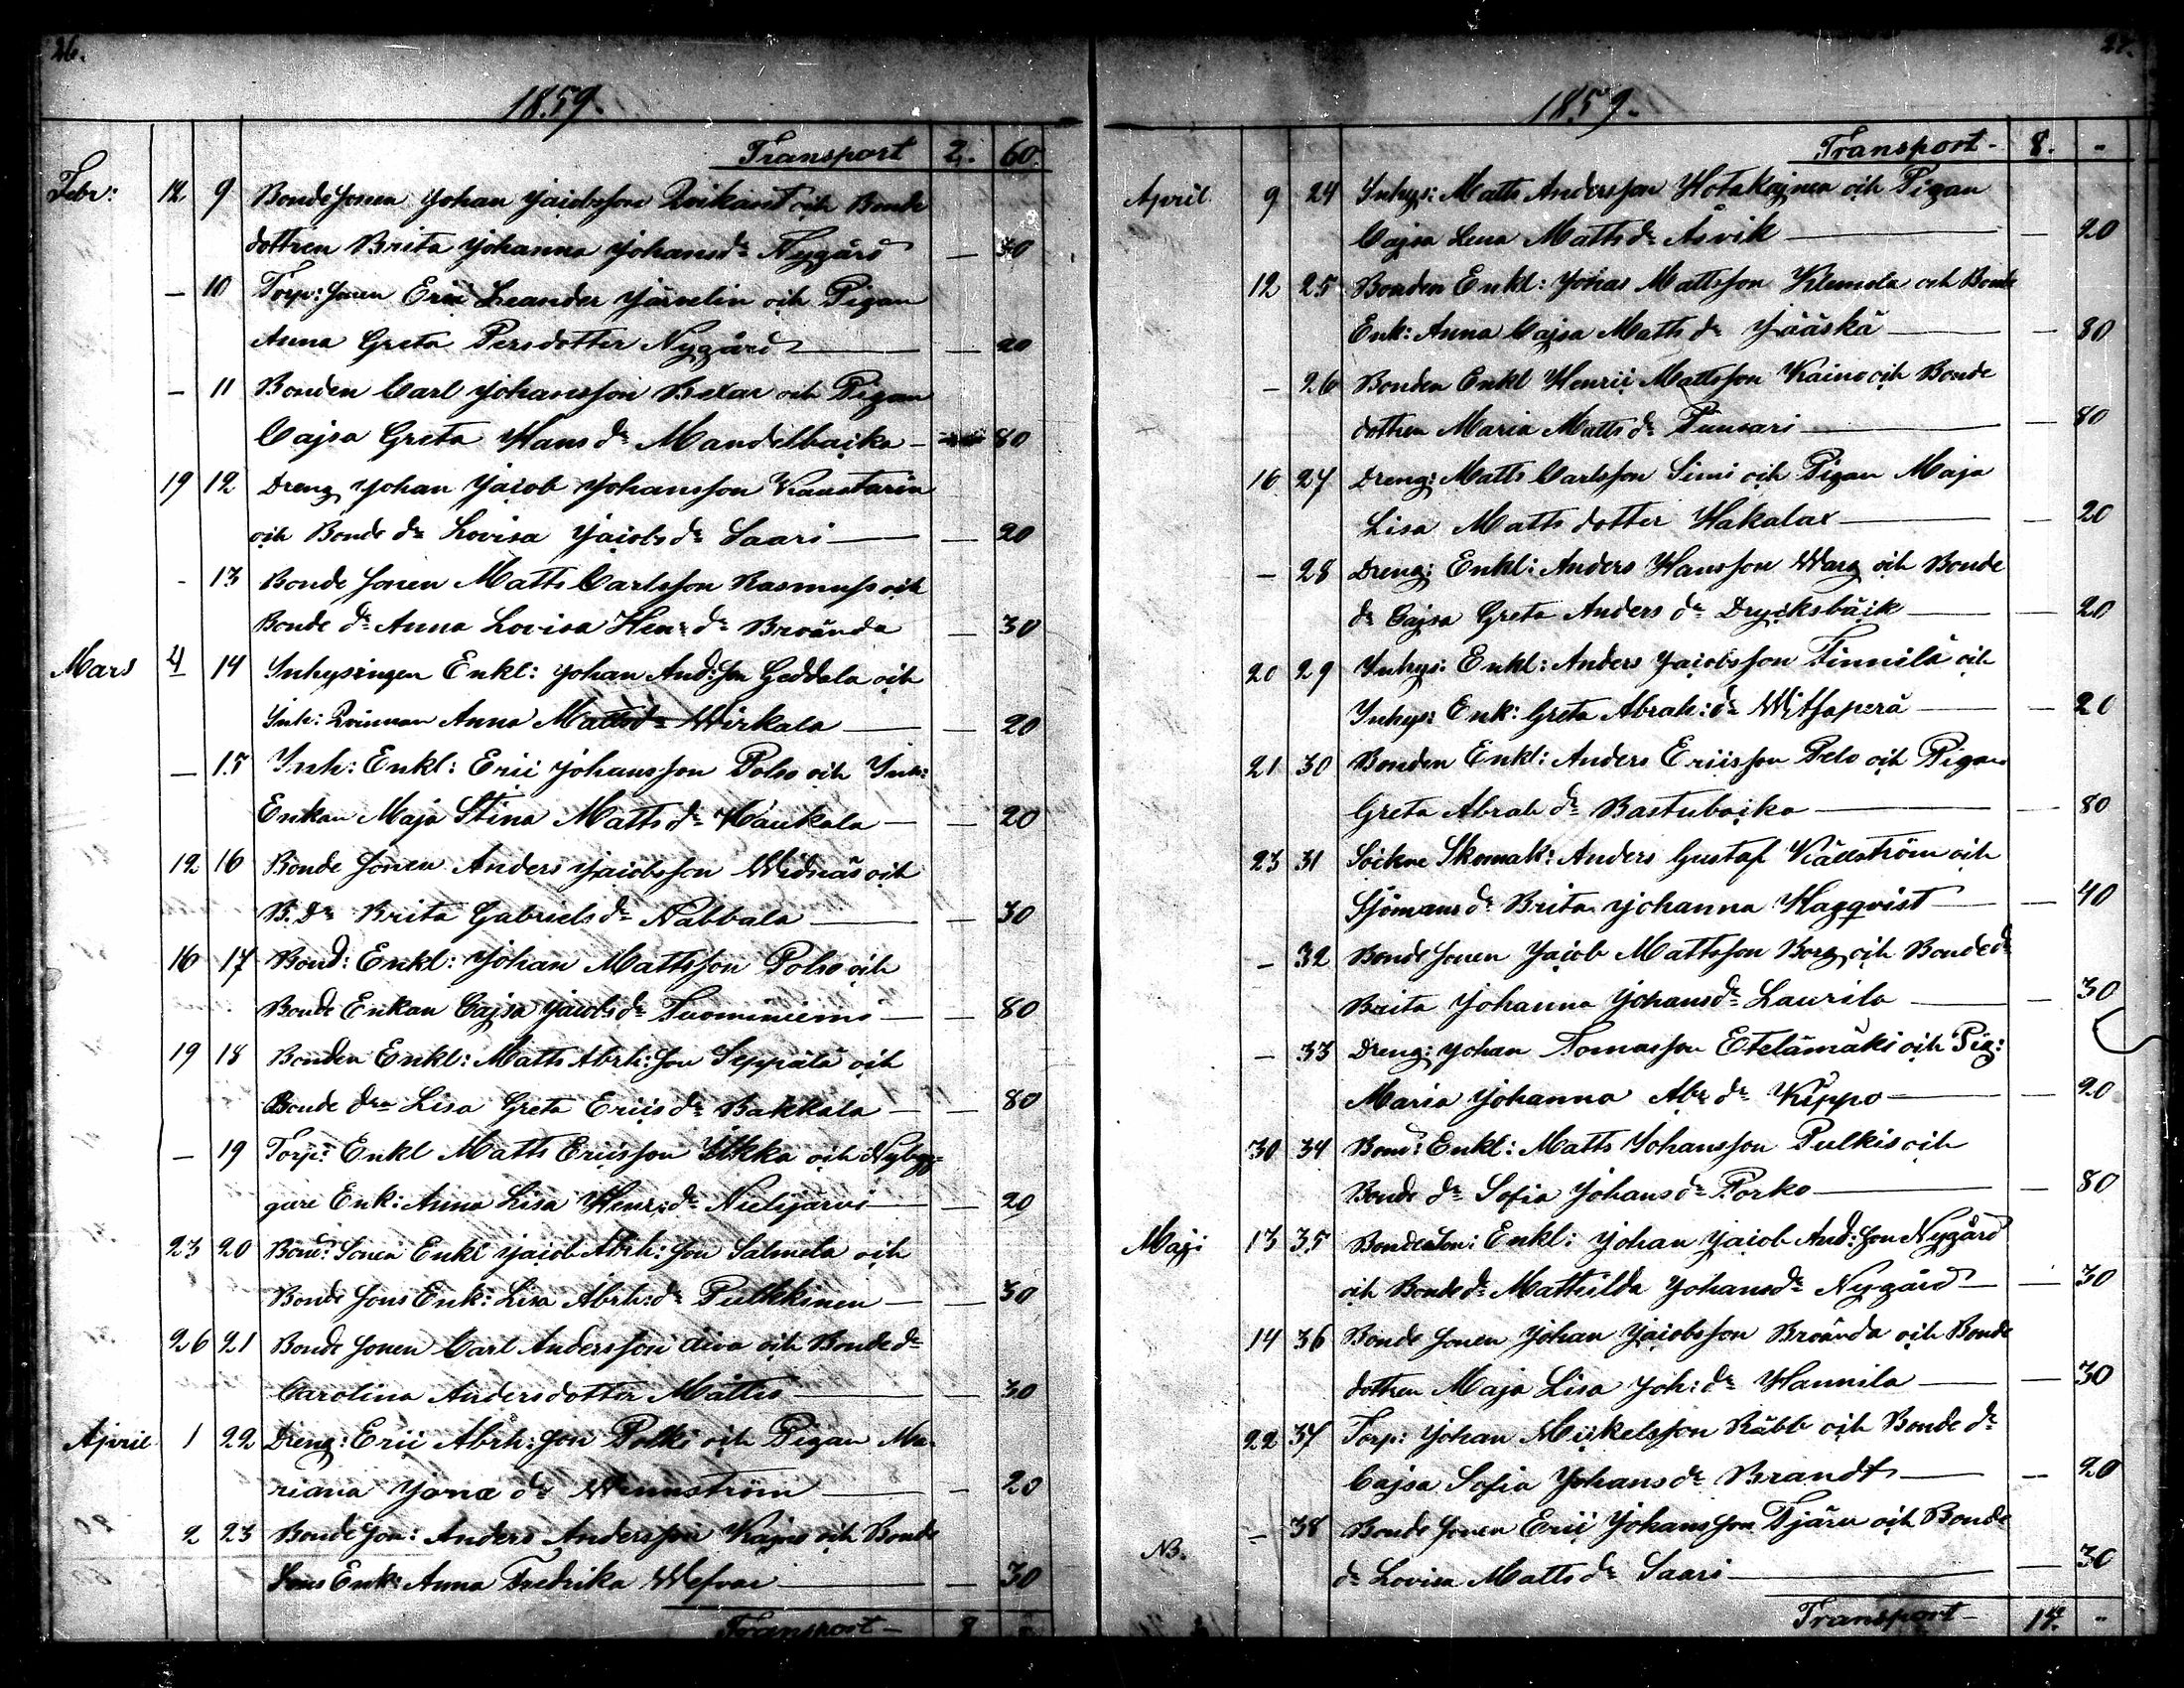 26.
1859.
Transport 2. 60.
Febr: 12 9 Bonde Sonen Johan Jacobsson Qvikant och Bonde
dottren Brita Johanna Johansdr Nygård — 30
— 10 Torp: Sonen Eric Leander Järvelin och Pigan
Anna Greta Persdotter Nygård — 20
— 11 Bonden Carl Johansson Bexar och Pigan
Cajsa Greta Hansdr Mandelbacka — 80
19 12 Dreng Johan Jacob Johansson Kaustarin
och Bonde dr Lovisa Jacobsdr Saari — 20
- 13 Bonde Sonen Matts Carlsson Rasmuss och
Bonde dr Anna Lovisa Hen: dr Broända — 30
Mars 4 14 Inhysingen Enkl: Johan And:son Geddala och
Inh: Qvinnan Anna Mattsdr Wirkala — 20
— 15 Inh: Enkl: Eric Johansson Polso och Inh:
Enkan Maja Stina Mattsdr Haukala — 20
12 16 Bonde Sonen Anders Jacobsson Widnäs och
B. Dr Brita Gabrielsdr Nabbala — 30
16 17 Bond: Enkl: Johan Mattsson Polso och
Bonde Enkan Cajsa Jacobsdr Tuominiemi — 80
19 18 Bonden Enkl: Matts Abrh:son Seppälä och
Bonde drn Lisa Greta Ericsdr Bakkala — 80
— 19 Torp: Enkl Matts Ericsson Ilkka och Nybyg-
gare Enk: Anna Lisa Henr: dr Nielijärvi — 20
23 20 Bond: Sonen Enkl Jacob Abrh:son Salmela och
Bonde Sons Enk: Lisa Abrh:dr Pulkkinen — 30
26 21 Bonde Sonen Carl Andersson Aiva och Bonde dr
Carolina Andersdotter Mattis — 30
April 1 22 Dreng: Eric Abrh:son Polki och Pigan Ma-
riana Jonæ dr Wennström — 20
2 23 Bonde Son: Anders Andersson Kajno och Bonde
Sons Enk: Anna Fredrika Wefvar — 30
Transport — 8 -
27.
1859.
Transport - 8. -
April 9 24 Inhys: Matts Andersson Hotakajnen och Pigan
Cajsa Lena Mattsdr Åsvik — 20
12 25 Bonden Enkl: Jonas Mattsson Klemola och Bonde
Enk: Anna Cajsa Matts dr Jääskä — 80
— 26 Bonden Enkl Henric Mattsson Kaino och Bonde
dottren Maria Matts dr Punsari — 80
16 27 Dreng: Matts Carlsson Simi och Pigan Maja
Lisa Matts dotter Hakalax — 20
— 28 Dreng: Enkl: Anders Hansson Warg och Bonde
dr Cajsa Greta Anders dr Drycksbäck — 20
20 29 Inhys: Enkl: Anders Jacobsson Finnilä och
Inhys: Enk: Greta Abrah: dr Witsaperä — 20
21 30 Bonden Enkl: Anders Ericsson Pelo och Pigan
Greta Abrah dr Bastubacka — 80
23 31 Sockne Skomak: Anders Gustaf Källström och
Sjömans dr Brita Johanna Hagqvist — 40
— 32 Bonde Sonen Jacob Mattsson Borg och Bonde dr
Brita Johanna Johansdr Laurila — 30
— 33 Dreng: Johan Tomasson Etelämäki och Pig:
Maria Johanna Abr: dr Kippo — 20
30 34 Bond: Enkl: Matts Johansson Pulkis och
Bonde dr Sofia Johansdr Porko — 80
Maji 13 35 Bondeson: Enkl: Johan Jacob And:son Nygård
och Bonde dr Mathilda Johansdr Nygård — 30
14 36 Bonde Sonen Johan Jacobsson Broända och Bonde
dottren Maja Lisa Joh: dr Hannila — 30
22 37 Torp: Johan Mickelsson Räbb och Bonde dr
Cajsa Sofia Johansdr Brandt — 20
NB. — 38 Bonde Sonen Eric Johansson Tjäru och Bonde
dr Lovisa Matts dr Saari — 30
Transport - 14. -